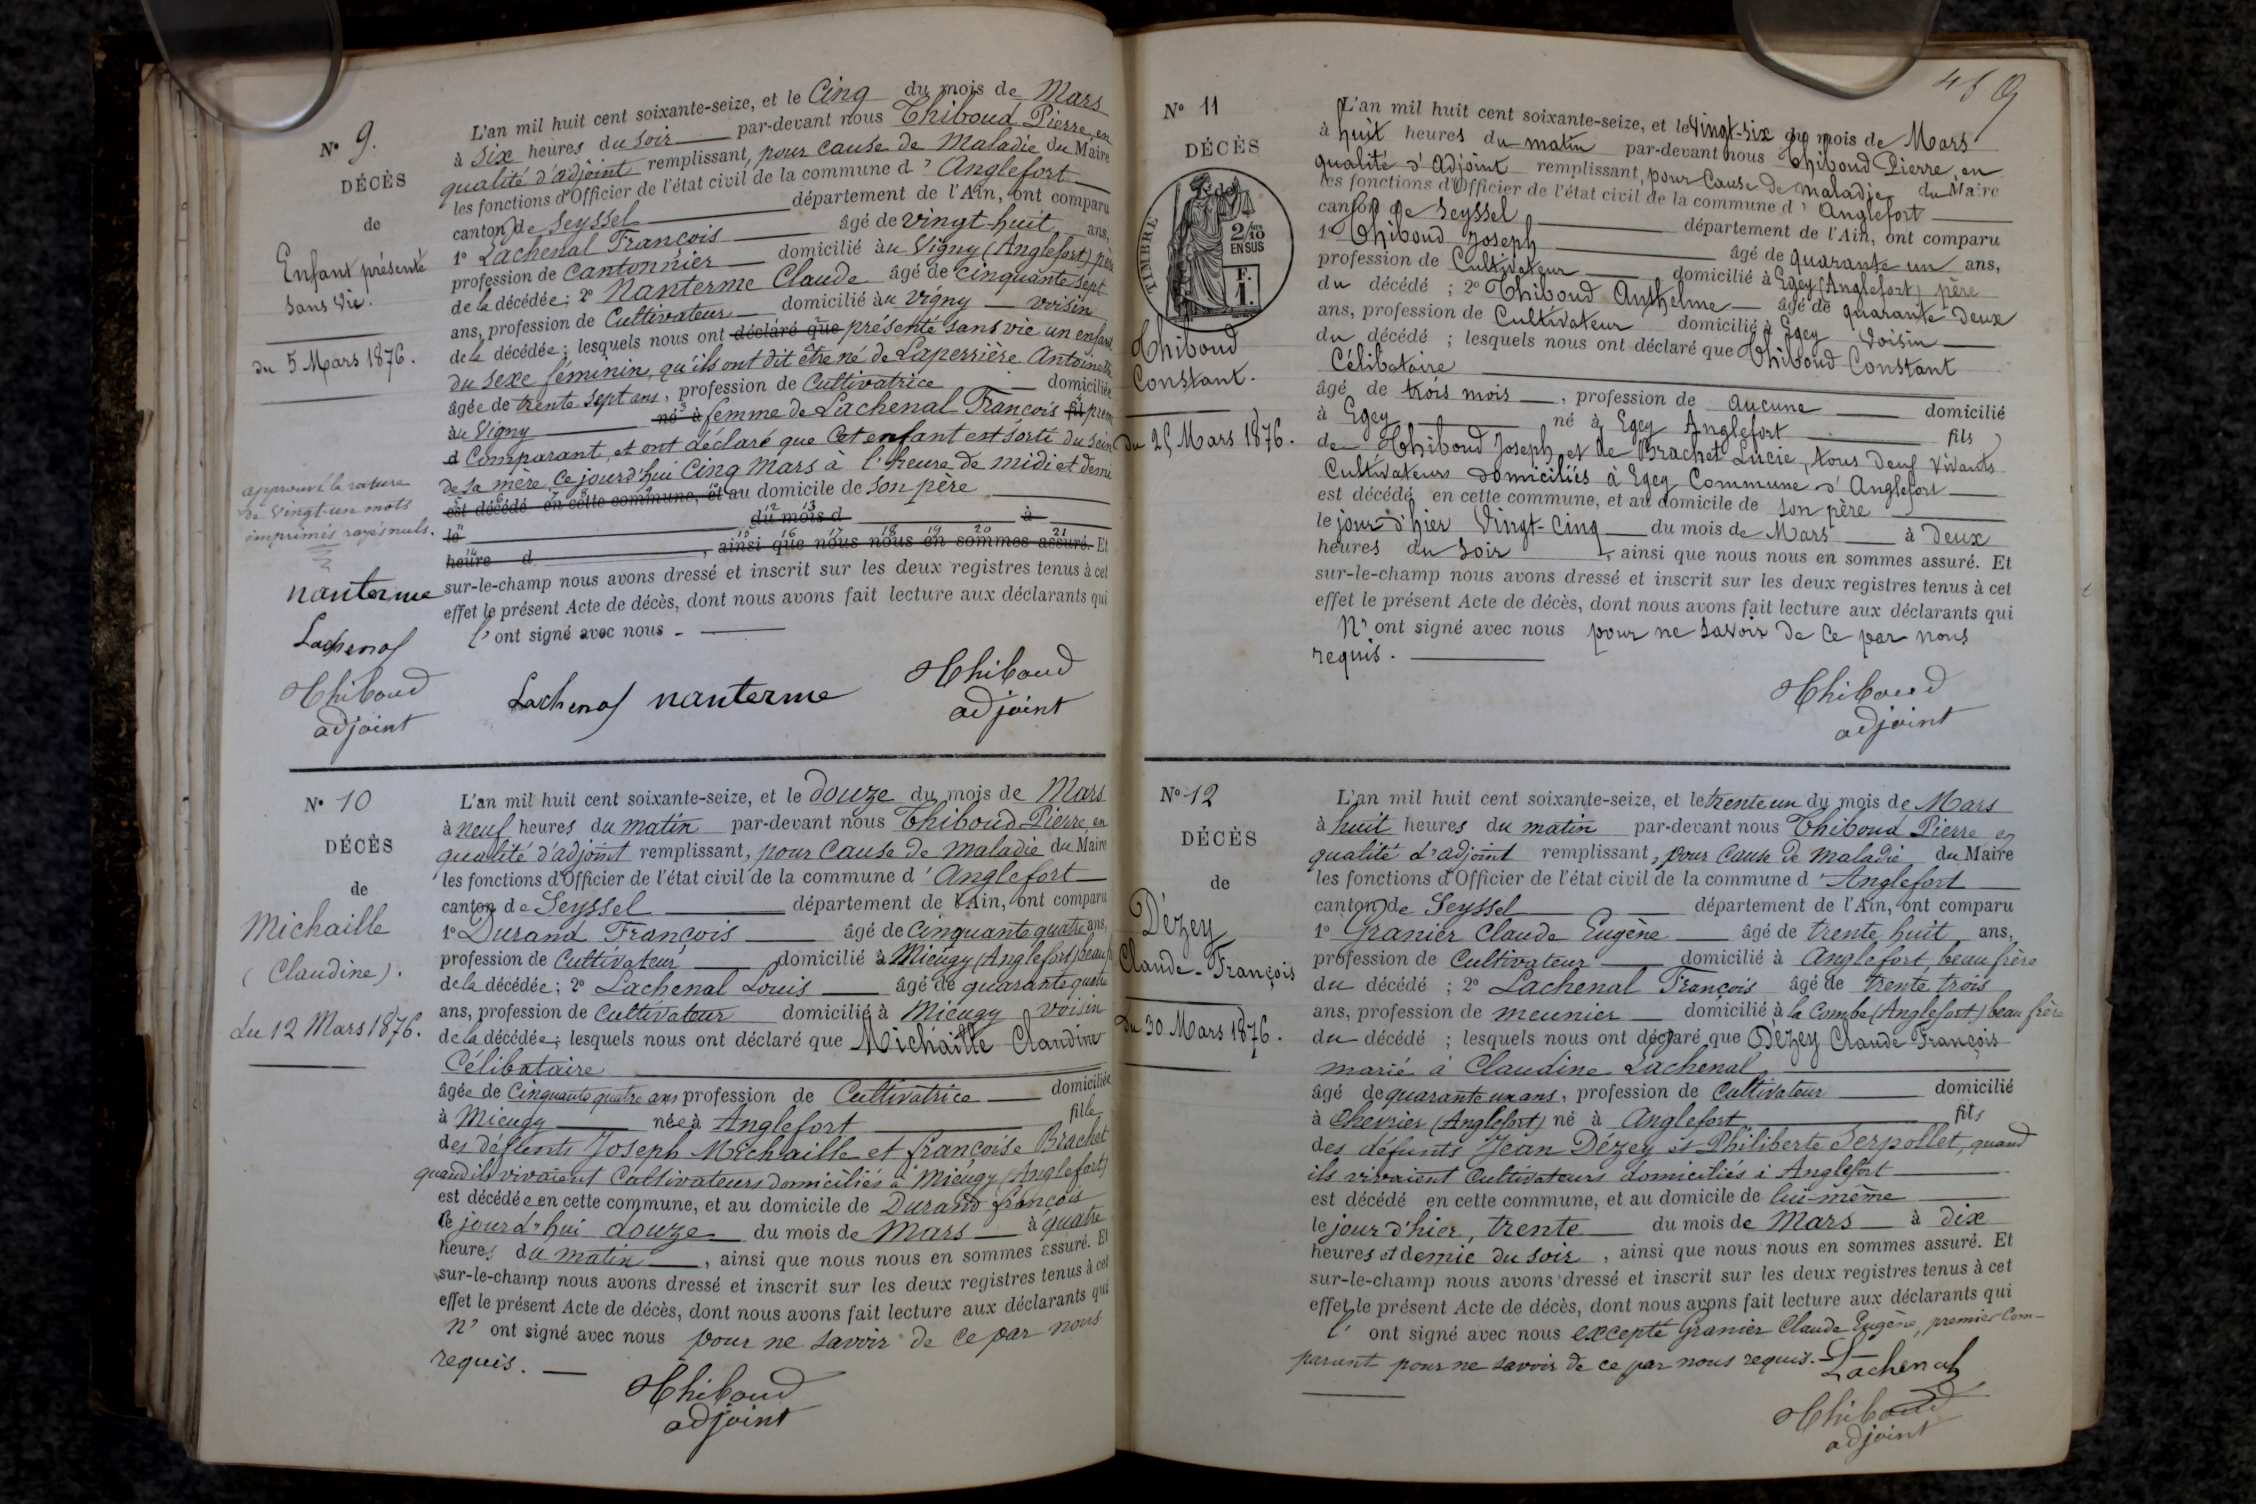 Nº 9.
DÉCÈS
de
Enfant présenté
sans vie.
du 5 Mars 1876.
approuvé la rature
de Vingt-un mots
imprimés rayés nuls.
nanterme
Lachenal
Thiboud
adjoint
L'an mil huit cent soixante-seize, et le Cinq du mois de Mars
à six heures du soir par-devant nous Thiboud Pierre, en
qualité d'adjoint remplissant, pour cause de Maladie du Maire
les fonctions d'Officier de l'état civil de la commune d'Anglefort
canton de Seyssel département de l'Ain, ont comparu
1º Lachenal François âgé de vingt-huit ans,
profession de Cantonnier domicilié à au Vigny (Anglefort) père
de la décédée; 2º Nanterme Claude âgé de cinquante sept
ans, profession de Cultivateur domicilié à au Vigny voisin
de la décédée; lesquels nous ont déclaré que présenté sans vie un enfant
du sexe féminin, qu'ils ont dit être né de Laperrière Antoinette
âgée de trente sept ans, profession de Cultivatrice domiciliée
à au Vigny né à femme de Lachenal François fil premier
d Comparant, et ont déclaré que Cet enfant est sorti du sein
de sa mère, Ce jourd'hui Cinq Mars à l'heure de midi et demi
est décédé en cette commune, et au domicile de son père
le du mois d à
heure d , ainsi que nous nous en sommes assuré. Et
sur-le-champ nous avons dressé et inscrit sur les deux registres tenus à cet
effet le présent Acte de décès, dont nous avons fait lecture aux déclarants qui
l'ont signé avec nous -
Lachenal nanterme Thiboud
adjoint
Nº 10
DÉCÈS
de
Michaille
(Claudine).
du 12 Mars 1876.
L'an mil huit cent soixante-seize, et le douze du mois de Mars
à neuf heures du matin par-devant nous Thiboud Pierre en
qualité d'adjoint remplissant, pour Cause de Maladie du Maire
les fonctions d'Officier de l'état civil de la commune d'Anglefort
canton de Seyssel département de l'Ain, ont comparu
1º Durand François âgé de Cinquante quatre ans,
profession de Cultivateur domicilié à Mieugy (Anglefort) beau
de la décédée; 2º Lachenal Louis âgé de quarante quatre
ans, profession de Cultivateur domicilié à Mieugy voisin
de la décédée; lesquels nous ont déclaré que Michaille Claudine
Célibataire
âgée de Cinquante quatre ans profession de Cultivatrice domiciliée
à Mieugy née à Anglefort fille
des défunts Joseph Michaille et françoise Brachet
quand ils vivaient Cultivateurs domiciliés à Mieugy (Anglefort)
est décédée en cette commune, et au domicile de Durand françois
le jourd'hui douze du mois de Mars à quatre
heures du matin , ainsi que nous nous en sommes assuré. Et
sur-le-champ nous avons dressé et inscrit sur les deux registres tenus à cet
effet le présent Acte de décès, dont nous avons fait lecture aux déclarants qui
n'ont signé avec nous pour ne savoir de ce par nous
requis.
Thiboud
adjoint
459
Nº 11
DÉCÈS
de
TIMBRE
2/10
EN SUS
F.
1.
Thiboud
Constant.
du 25 Mars 1876.
L'an mil huit cent soixante-seize, et le vingt-six du mois de Mars
à huit heures du matin par-devant nous Thiboud Pierre, en
qualité d'Adjoint remplissant, pour Cause de maladie du Maire
les fonctions d'Officier de l'état civil de la commune d'Anglefort
canton de Seyssel département de l'Ain, ont comparu
1º Thiboud Joseph âgé de quarante un ans,
profession de Cultivateur domicilié à Egey (Anglefort) père
du décédé; 2º Thiboud Anthelme âgé de quarante deux
ans, profession de Cultivateur domicilié à Egey voisin
du décédé; lesquels nous ont déclaré que Thiboud Constant
Célibataire
âgé de trois mois, profession de aucune domicilié
à Egey né à Egey Anglefort fils
de Thiboud Joseph et de Brachet Lucie, tous deux vivants
Cultivateurs domiciliés à Egey Commune d'Anglefort
est décédé en cette commune, et au domicile de son père
le jour d'hier Vingt-Cinq du mois de Mars à Deux
heures du Soir , ainsi que nous nous en sommes assuré. Et
sur-le-champ nous avons dressé et inscrit sur les deux registres tenus à cet
effet le présent Acte de décès, dont nous avons fait lecture aux déclarants qui
N'ont signé avec nous pour ne savoir de Ce par nous
requis.
Thiboud
adjoint
Nº 12
DÉCÈS
de
Dézey
Claude-François
Du 30 Mars 1876.
L'an mil huit cent soixante-seize, et le trente un du mois de Mars
à huit heures du matin par-devant nous Thiboud Pierre en
qualité d'adjoint remplissant, pour Cause de Maladie du Maire
les fonctions d'Officier de l'état civil de la commune d'Anglefort
canton de Seyssel département de l'Ain, ont comparu
1º Granier Claude Eugène âgé de trente huit ans,
profession de Cultivateur domicilié à Anglefort beau frère
du décédé; 2º Lachenal François âgé de trente trois
ans, profession de meunier domicilié à la Combe (Anglefort) beau frère
du décédé; lesquels nous ont déclaré que Dézey Claude François
marié à Claudine Lachenal
âgé de quarante un ans, profession de Cultivateur domicilié
à Chevrier (Anglefort) né à Anglefort fils
des défunts Jean Dézey et Philiberte Serpollet, quand
ils vivaient Cultivateurs domiciliés à Anglefort
est décédé en cette commune, et au domicile de lui-même
le jour d'hier, trente du mois de Mars à dix
heures et demie du soir, ainsi que nous nous en sommes assuré. Et
sur-le-champ nous avons dressé et inscrit sur les deux registres tenus à cet
effet le présent Acte de décès, dont nous avons fait lecture aux déclarants qui
l'ont signé avec nous excepté Granier Claude Eugène, premier Com-
parant pour ne savoir de ce par nous requis. Lachenal
Thiboud
adjoint